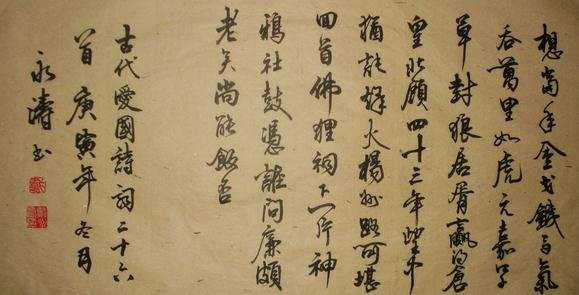 想當年金戈鐵馬氣
吞萬里如虎元嘉草
草封狼居胥贏得倉
皇北顧四十三年望中
猶記烽火揚州路可堪
回首佛狸祠下一片神
鴉社鼓憑誰問廉頗
老矣尚能飯否
古代愛國詩詞二十六
首庚寅年冬月
永濤书